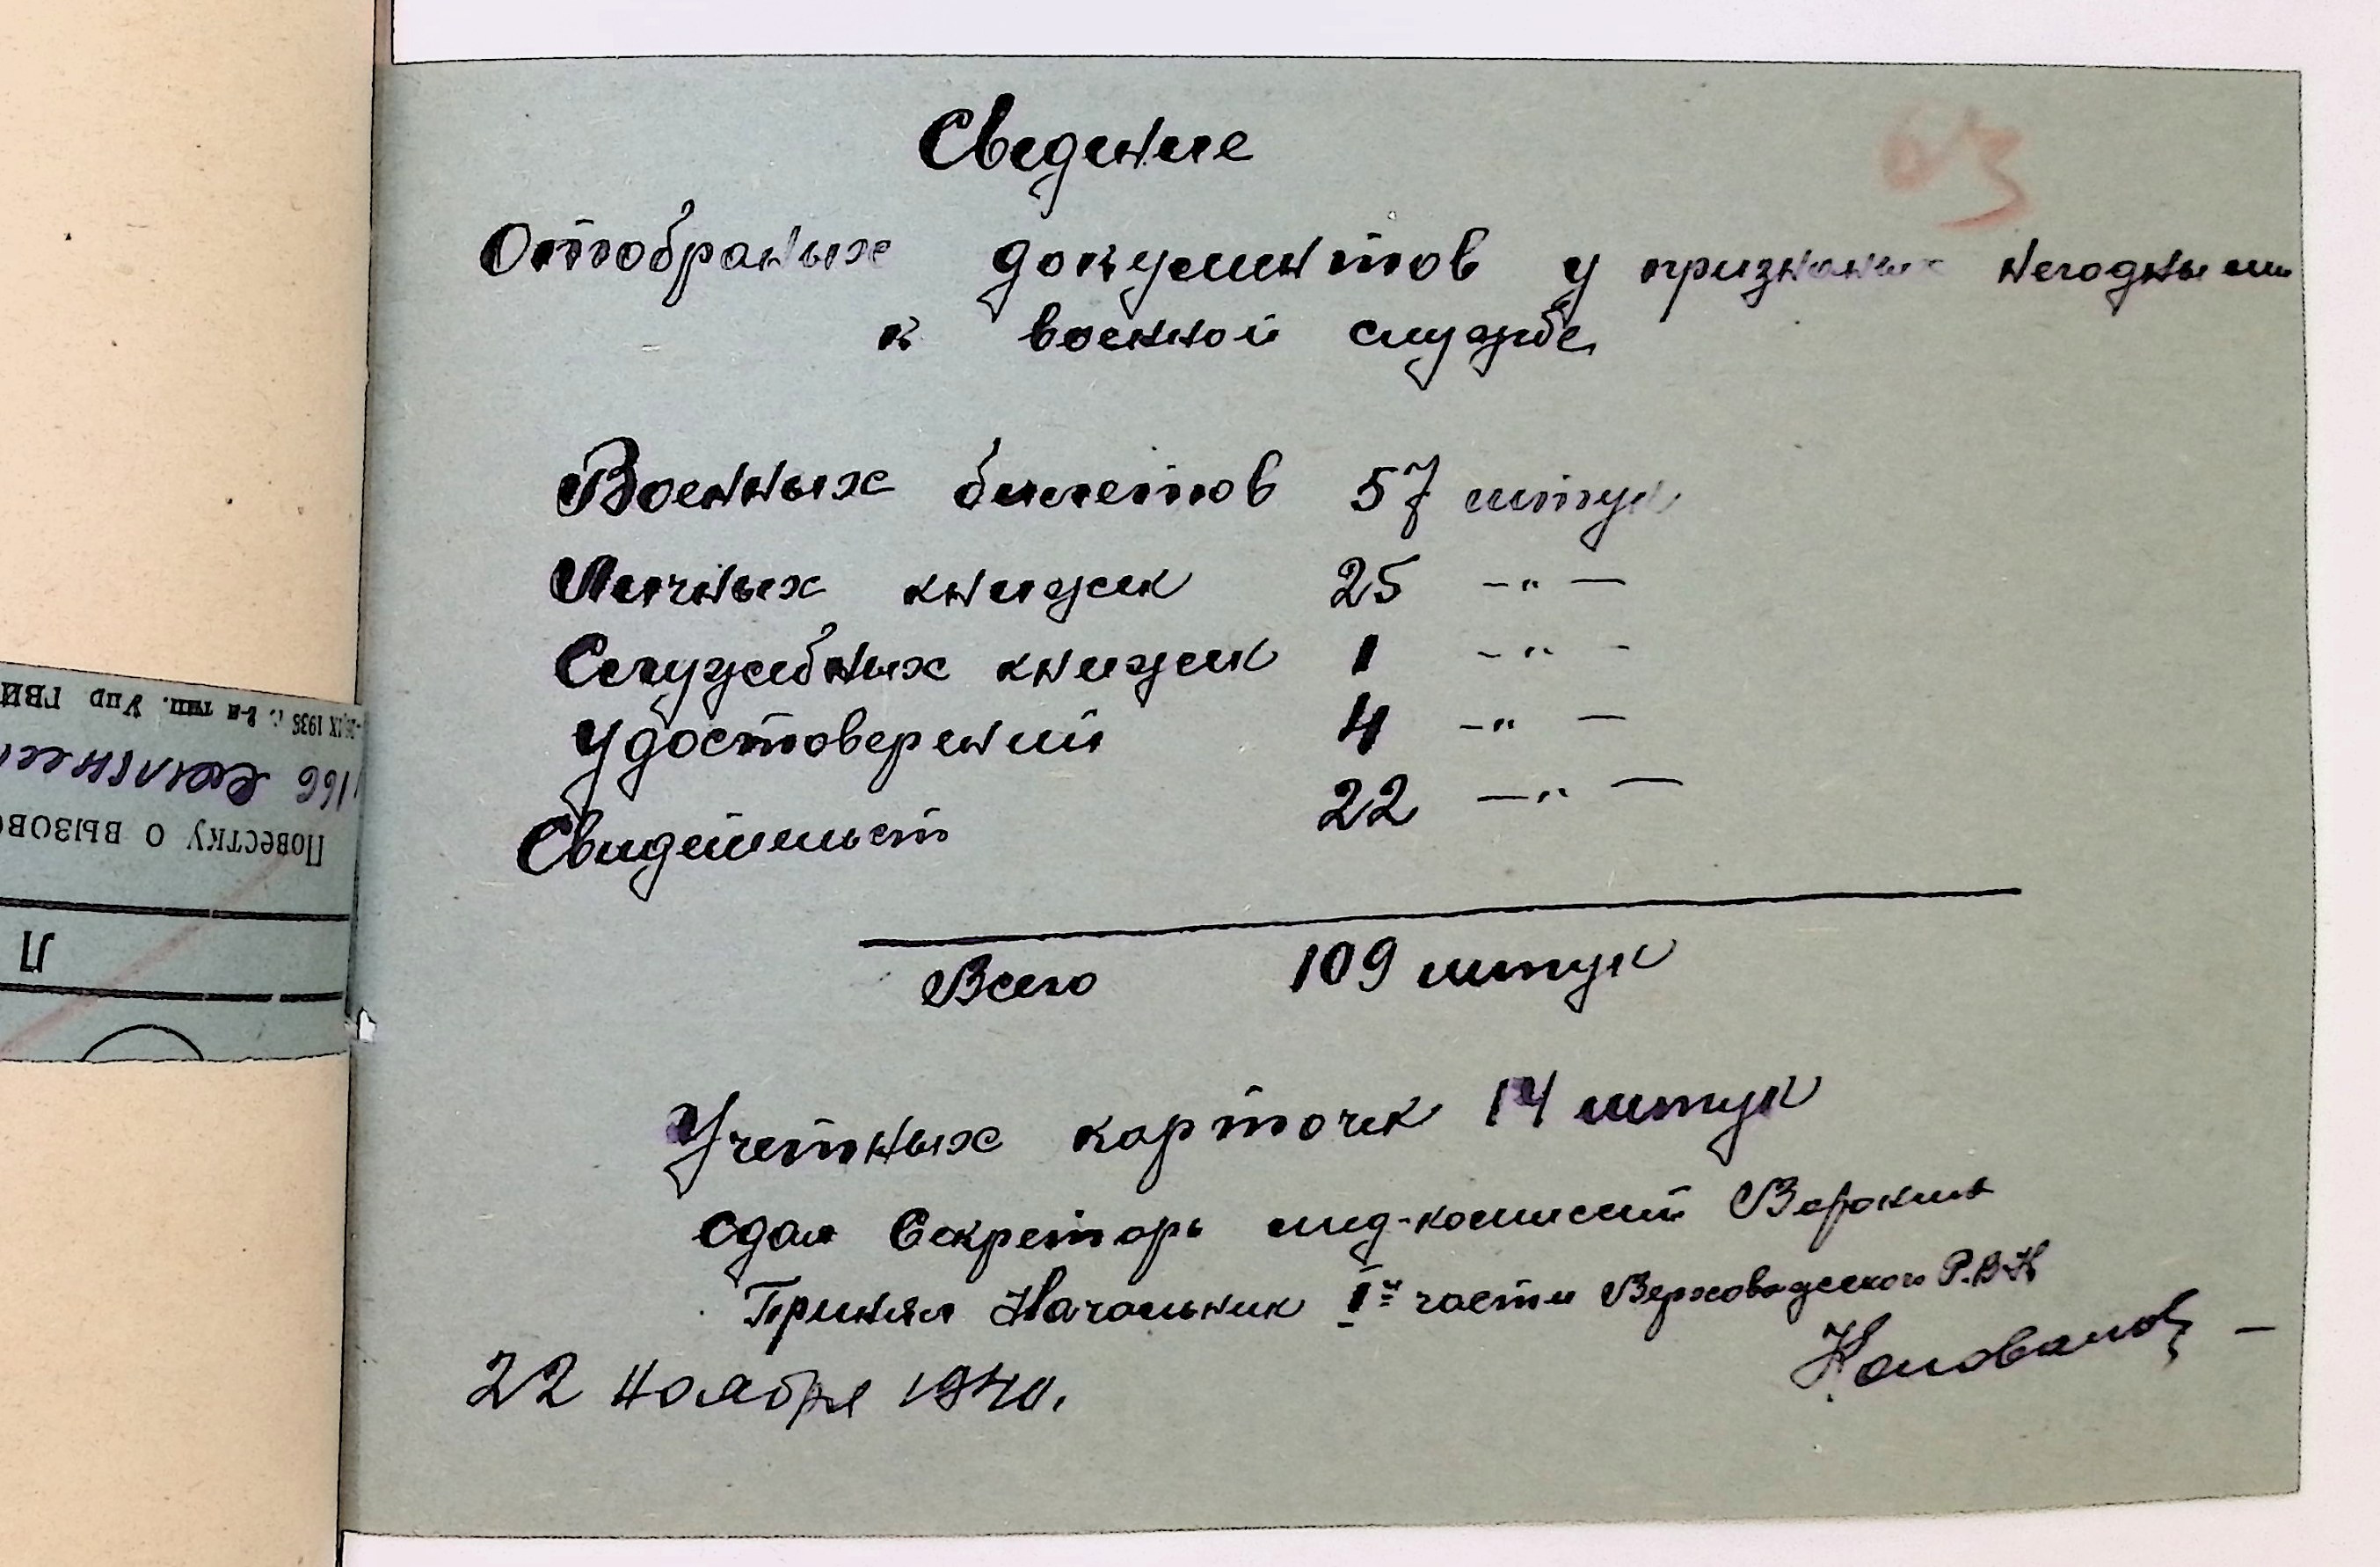 Сведение
63
Отобраных документов у признаных негодными
к военной службе
Военных билетов 57 штук
Личных книжек 25 —"—
Служебных книжек 1 —"—
Удостоверений 4 —"—
Свидетельст 22 —"—
Всего 109 штук
Учетных карточек 14 штук
Сдал Секретарь мед-комиссии Воронин
Принял Начальник I й части Верховодского Р.В.К
22 Ноября 1940.
-26/IX 1935 г. 2-я тип. Упр ГВИ
166
Повестку о вызов
П